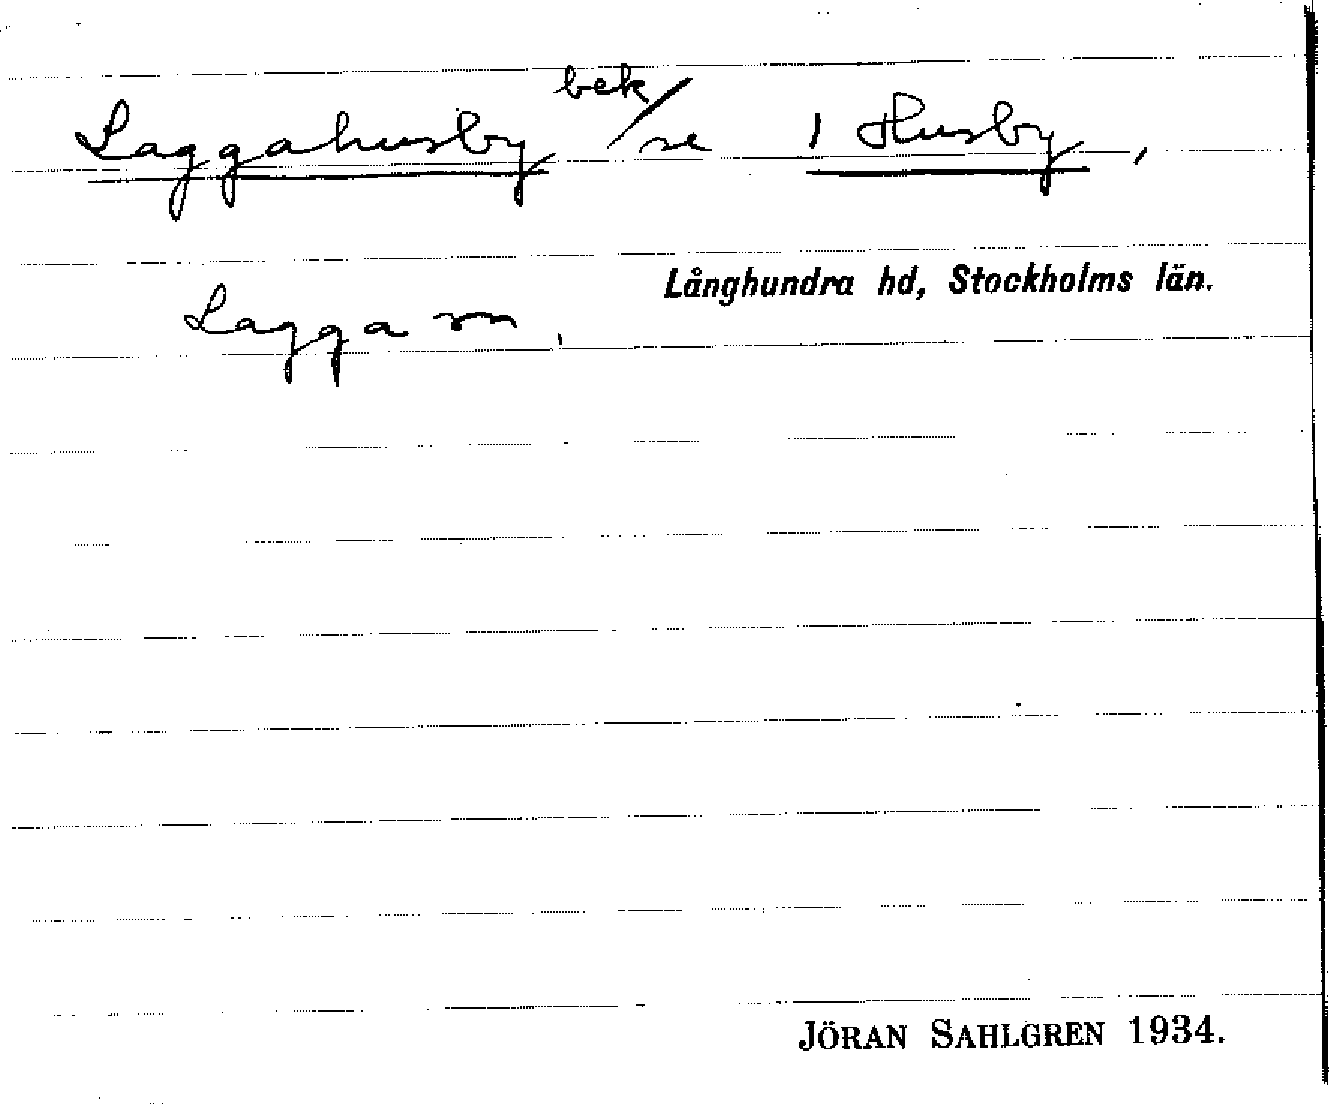 Laggahusby bek/se 1 Husby,
Långhundra hd, Stockholms län.
Lagga sn,
JÖRAN SAHLGREN 1934.